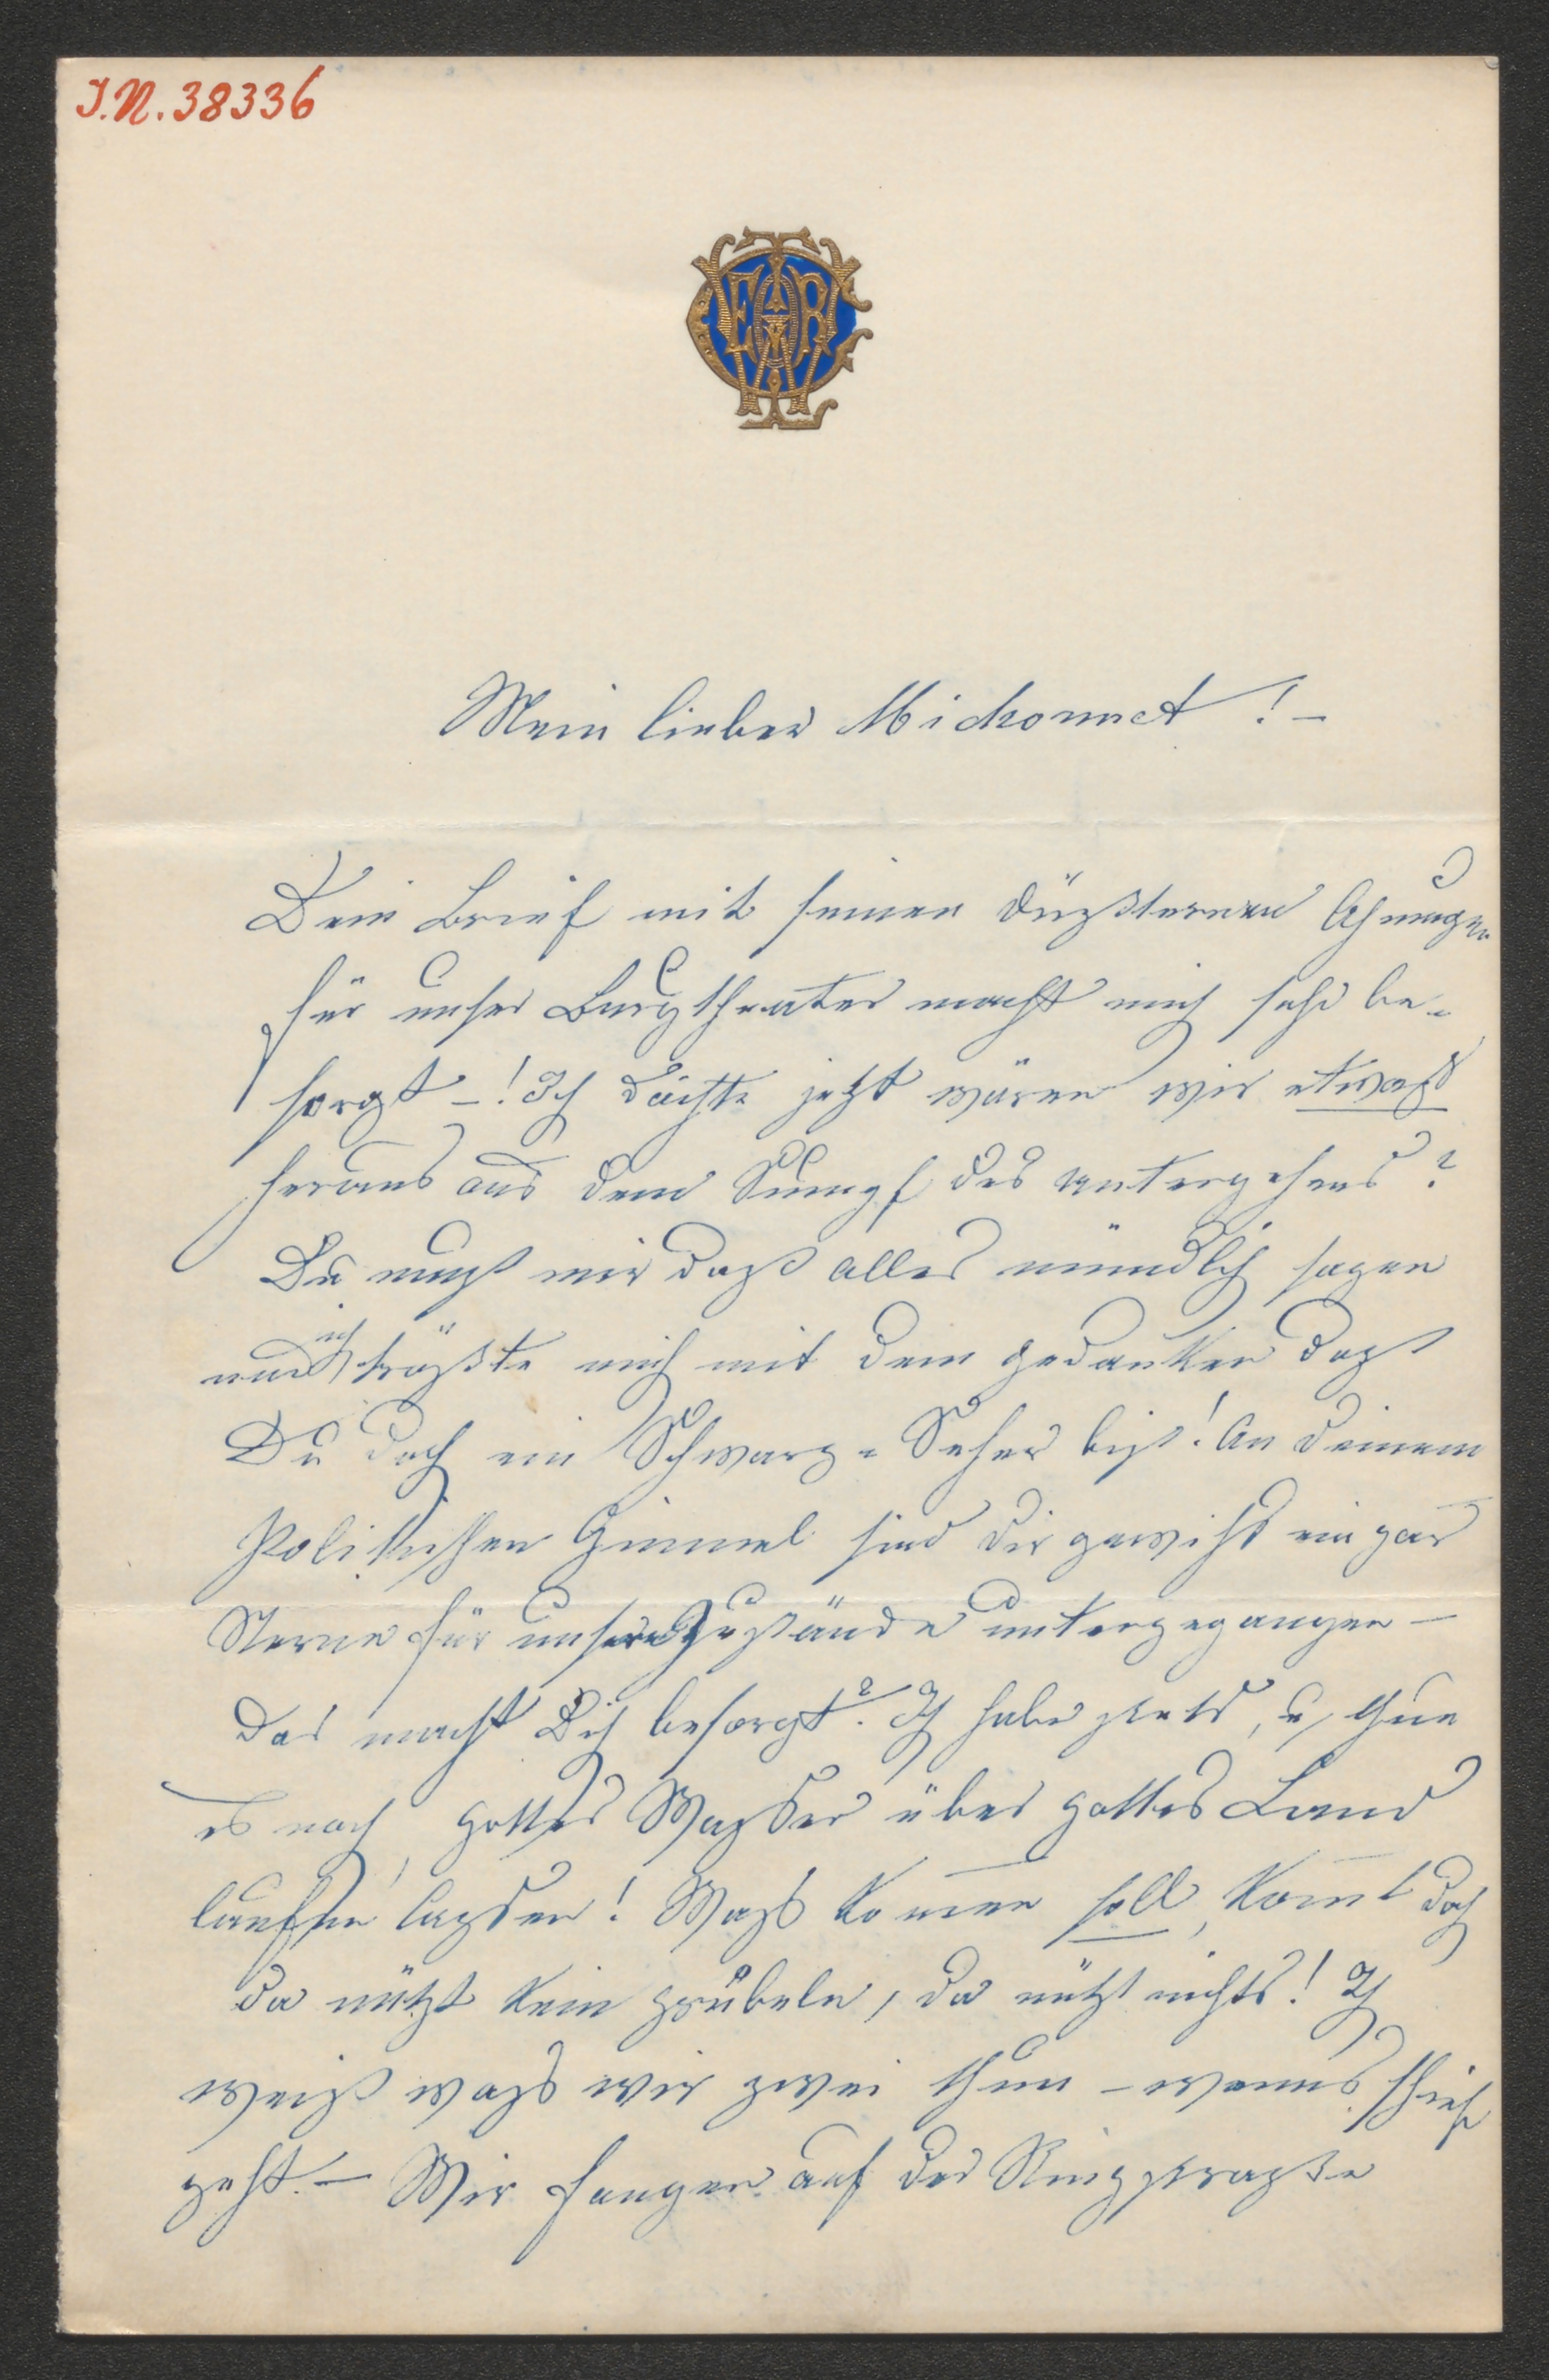 I.N. 38336
Mein lieber Michonnet! -
Dein Brief mit seinen düßsternen Ahnungen
für unser Burgtheater macht mich sehr be-
sorgt -! Ich dächte jetzt wären wir etwaß
heraus aus dem Sumpf des untergehens?
Du mußt mir daß alles mündlich sagen
und ich tröste mich mit dem gedanken daß
Du doch ein Schwarz-Seher bist! An deinem
Politischen Himmel sind dir gewiß ein par
Sterne für unsere Zustände untergegangen -
das macht Dich besorgt? Ich habe stets, u, thue
es noch, gottes Waßer über gottes Land
lauffen laßen! Waß kommen soll, kommt doch
da nützt kein grübeln, da nützt nichts! Ich
weiß waß wir zwei thun - wenns schief
geht. - Wir fangen auf der Ringstraße